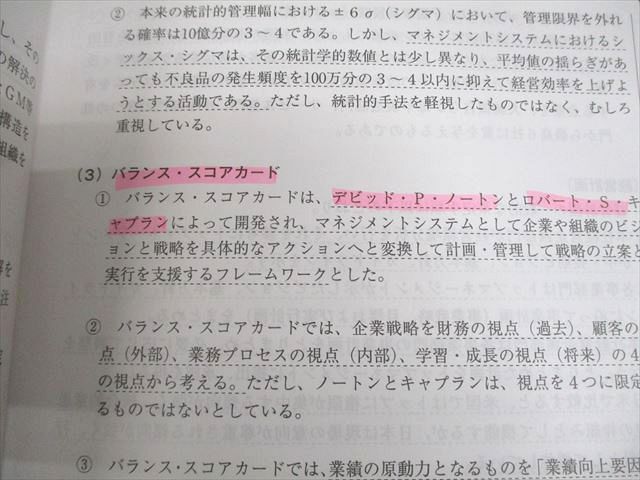 ② 本来の統計的管理幅における±6σ(シグマ)において、管理限界を外れ
る確率は10億分の3~4である。しかし、マネジメントシステムにおけるシ
ックス・シグマは、その統計学的数値とは少し異なり、平均値の揺らぎがあ
っても不良品の発生頻度を100万分の3~4以内に抑えて経営効率を上げよ
うとする活動である。ただし、統計的手法を軽視したものではなく、むしろ
重視している。
(3) バランス・スコアカード
① バランス・スコアカードは、デビッド・P・ノートンとロバート・S・キ
ャプランによって開発され、マネジメントシステムとして企業や組織のビジ
ョンと戦略を具体的なアクションへと変換して計画・管理して戦略の立案と
実行を支援するフレームワークとした。
② バランス・スコアカードでは、企業戦略を財務の視点(過去)、顧客の
点(外部)、業務プロセスの視点(内部)、学習・成長の視点(将来)の4
の視点から考える。ただし、ノートンとキャプランは、視点を4つに限定
るものではないとしている。
③ バランス・スコアカードでは、業績の原動力となるものを「業績向上要因
し、その
の解決の
GM等
構造を
組織を
解を
注